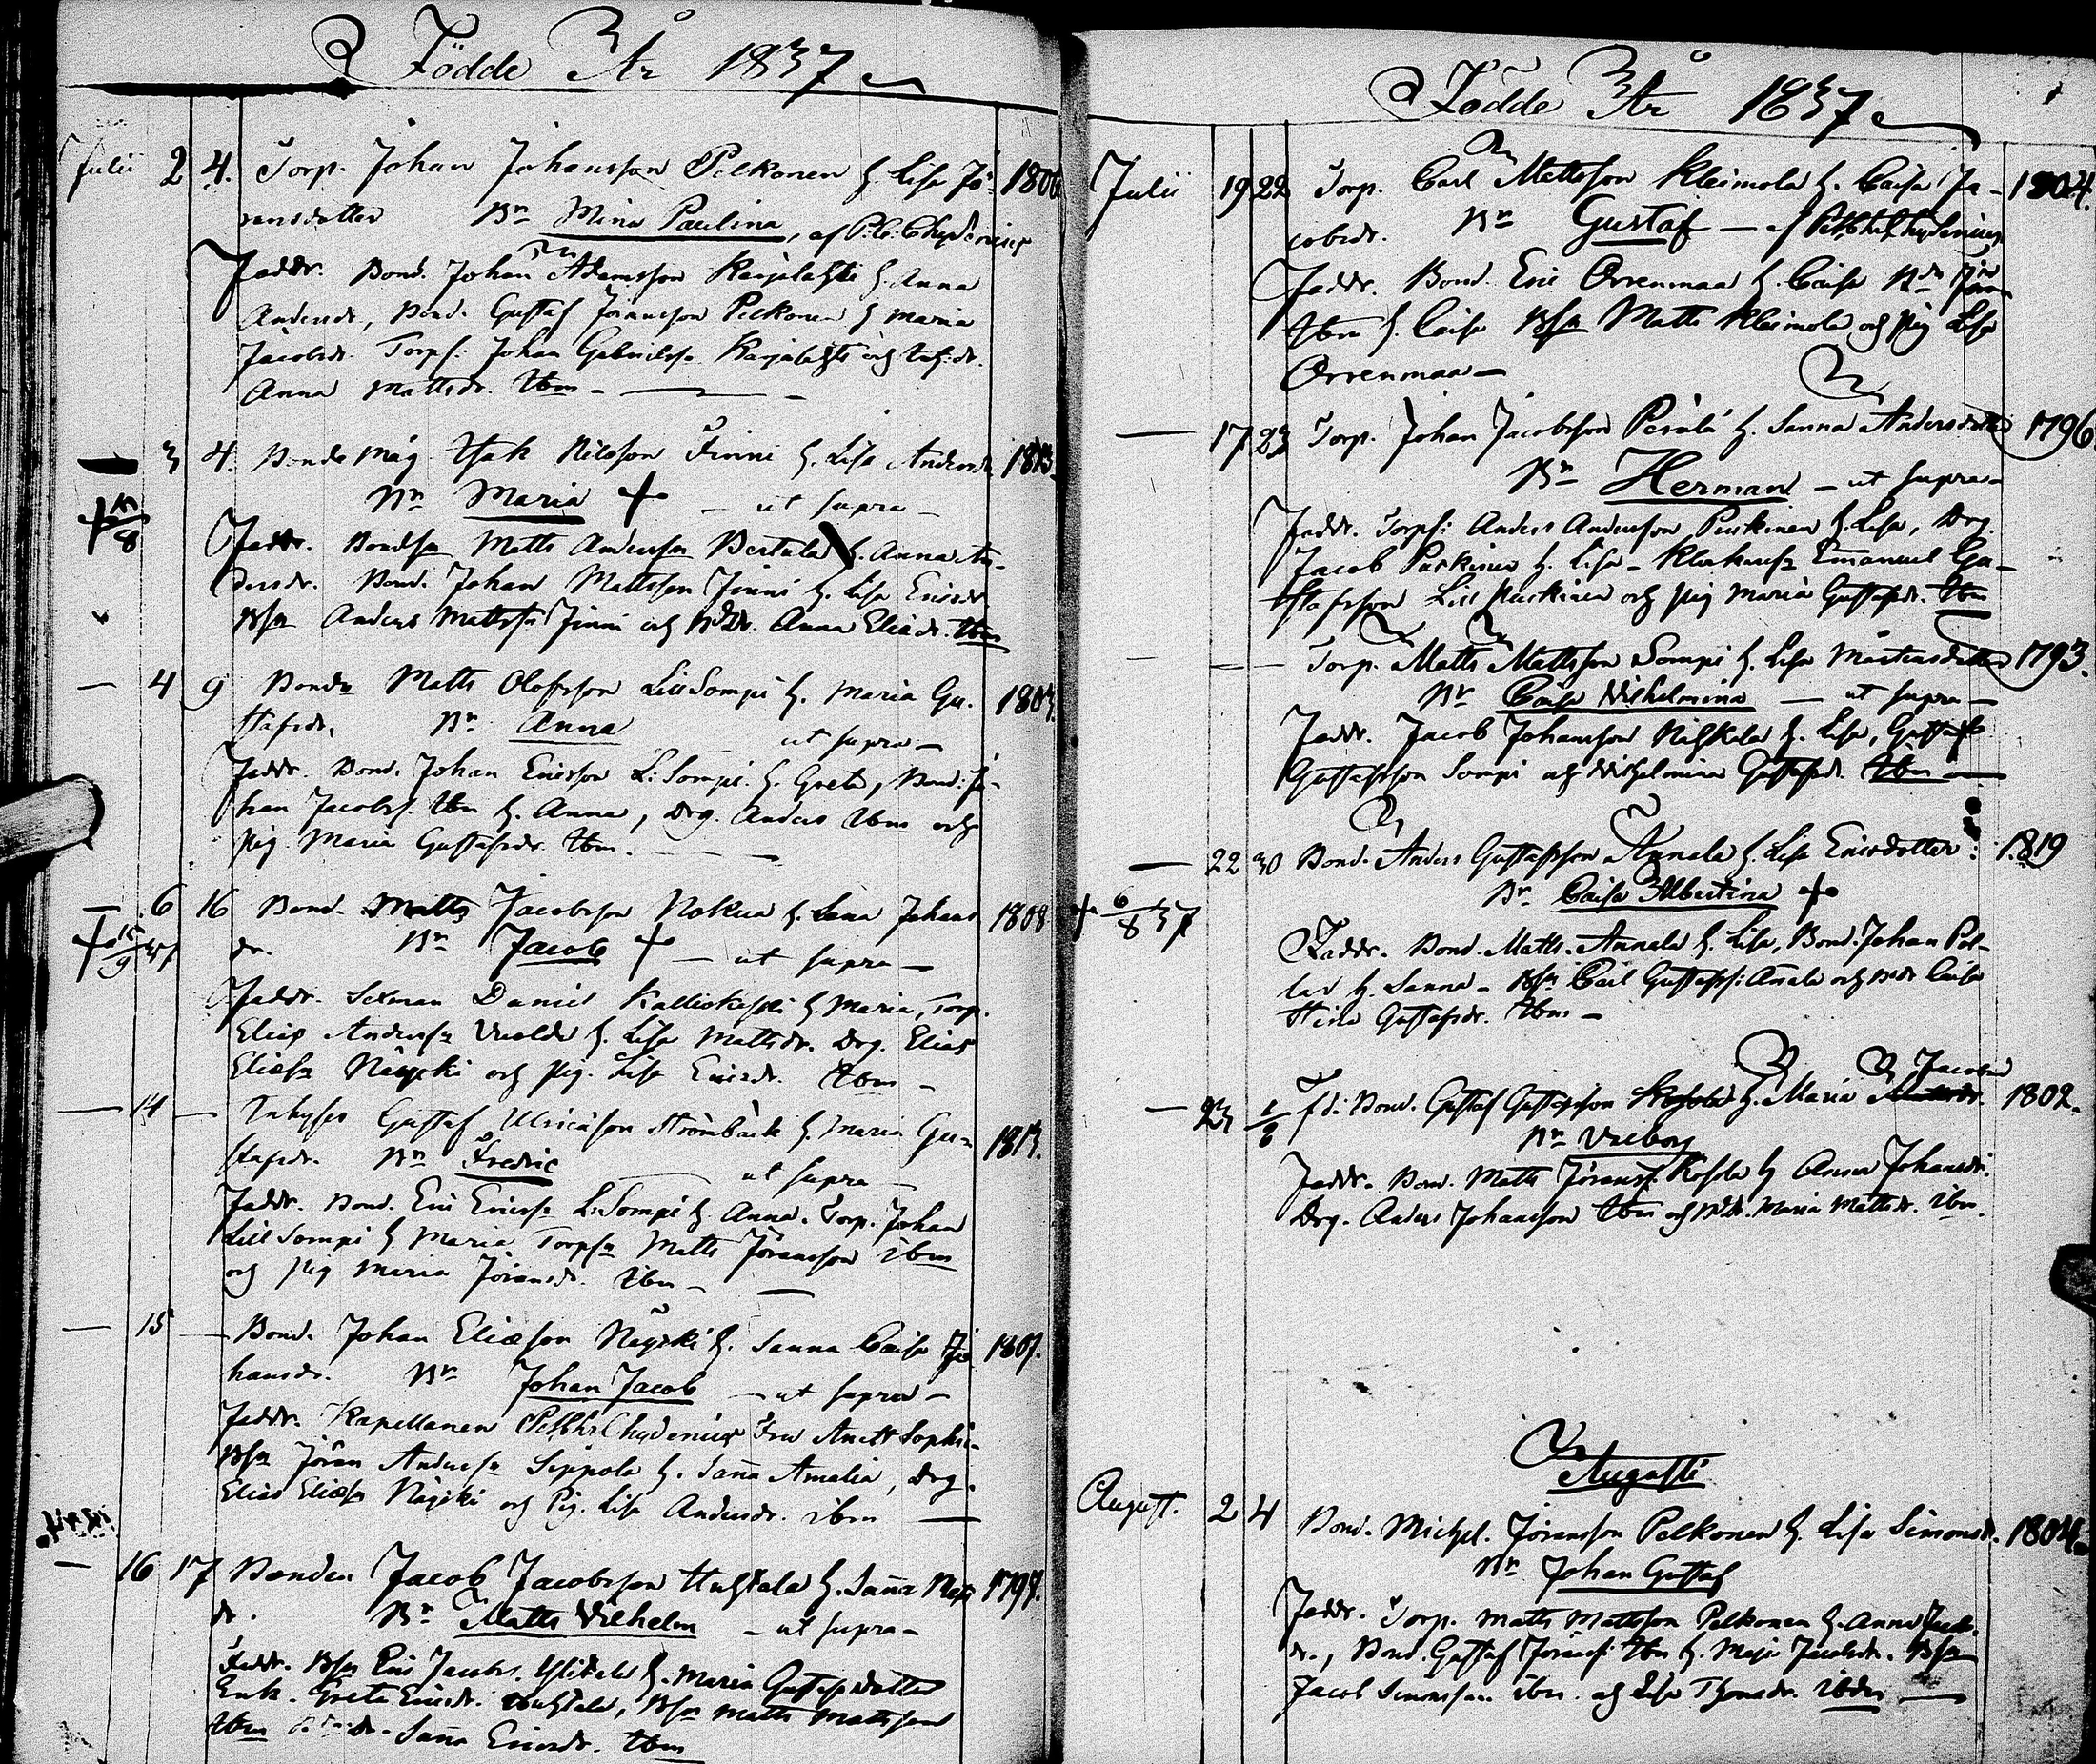 Födde År 1837
Julii 2 4. Torp. Johan Johansson Pelkonen h. Lisa Jö- 1806
ransdotter Bn Mina Paulina, af P.C. Chydenius
Faddr. Bond. Johan Adamsson h. Anna
Andersdr, Bond. Gustaf Jöransson Pelkonen h. Maria
Jacobsdr. Torps: Johan Gabrielss. och
Anna Mattsdr. Ibm
3 4. Bonde Måg Isak Nilsson Finni h. Lisa Andersdr. 1813.
Bn Maria + - ut supra -
Faddr. Bondsn Matts Andersson Bertula h. Anna An-
dersdr. Bond. Johan Mattsson Finni h. Lisa Ericsdr
Bsn Anders Mattssn Finni och Bdr. Anna Eliædr. Ibm
4 9 Bondn Matts Olofsson LillSompi h. Maria Gu-
stafsdr. Bn Anna ut supra -
Faddr. Bond. Johan Ericsson L: Sompi. h. Greta, Bond: Jo-
han Jacobss. Ibm h. Anna, Drg. Anders Ibm och
pig Maria Gustafsdr. Ibm.
6 16 Bond. Matts Jacobsson Nokua h. Johans 1808
dr. Bn Jacob + - ut supra -
Faddr. Sexman Daniel Kalliokoski h. Maria, Torp.
Elias Anderssn h. Lisa Mattsdr. Drg. Elias
Eliæsn Näyski och pig. Lisa Ericsdr. Ibm -
14 - Inhyses Gustaf Ulricsson Strömbäck h. Maria Gu- 1813.
stafsdr. Bn Fredric ut supra -
Faddr. Bond. Eric Ericssn L: Sompi h. Anna. Torp. Johan
LillSompi h. Maria Torpsn Matts Jöransson ibm
och pig Maria Jöransdr. Ibm -
15 - Bond. Johan Eliæson Näyski h. Sanna Caisa Jo 1807.
hansdr. Bn Johan Jacob - ut supra -
Faddr. Kapellanen Chydenius Fru Anett Sophi-
Bsn Jöran Anderssn Seppola h. Sanna Amalia, Drg.
Elias Eliæsn Näyski och Pig. Lisa Andersdr. ibm
16 17 Bonden Jacob Jacobsson Huhtala h. Sanna
dr. Bn Matts Vilhelm - ut supra -
Faddr. Bsn Eric Jacobs. h. Maria Gustafsdotter
Enk. Greta Ericsdr. Huhtala, Bsn Matts Mattsson
Ibm Sanna Ericsdr. Ibm
Födde År 1837
Julii 19 22 Torp. Carl Mattsson Kleimola h. Caisa Ja- 1804.
cobsdr. Bn Gustaf - af Chydenius
Faddr. Bond. Eric Orrenmaa h. Caisa
Ibm h. Caisa Bsn Matts Kleimola och pig Lisa
Orrenmaa -
17 23 Torp. Johan Jacobsson Perälä h. Sanna Andersdotter 1796
Bn Herman - ut supra -
Faddr. Torps: Anders Andersson Puskinen h. Lisa, Drg.
Jacob Puskinen h. Lisa - Emanuel Gu-
stafsson Lill Puskinen och pig Maria Gustafsdr. Ibm
- - - Torp. Matts Mattsson Sompi h. Lisa Mårtensdotter 1793.
Bn Caisa Wilhelmina - ut supra -
Faddr. Jacob Johansson h. Lisa, Gustaf
Gustafsson Sompi och Wilhelmina Gustafsdr. Ibm
22 30 Bond. Anders Gustafsson Annala h. Lisa Ericsdotter 1819
+ 6/8 37 Bn Caisa Albertina +
Faddr. Bond. Matts. Annala h. Lisa, Bond. Johan Pol-
lar h. Sanna - Bsn Carl Gustafss: Annala och Bdr Caisa
Stina Gustafsdr. Ibm -
Jacobs
23 1/8 fd: Bond. Gustaf Gustafsson Koskela h. Maria 1802.
Bn Valborg
Faddr. Bond. Matts Jöranss. h. Anna Johansdr.
Drg. Anders Johansson Ibm och Bdr. Maria Mattsdr. ibm.
Augusti
August. 2 4 Bond. Michel. Jöransson Pelkonen h. Lisa Simonsdr. 1804.
Bn Johan Gustaf
Faddr. Torp. Matts Mattsson Pelkonen h. Anna Jacobs
dr., Bond. Gustaf Jöranss: Ibm h. Maja Jacobsdr. Bsn
Jacob Simonsson ibm. och Lisa Thomadr. ibdm